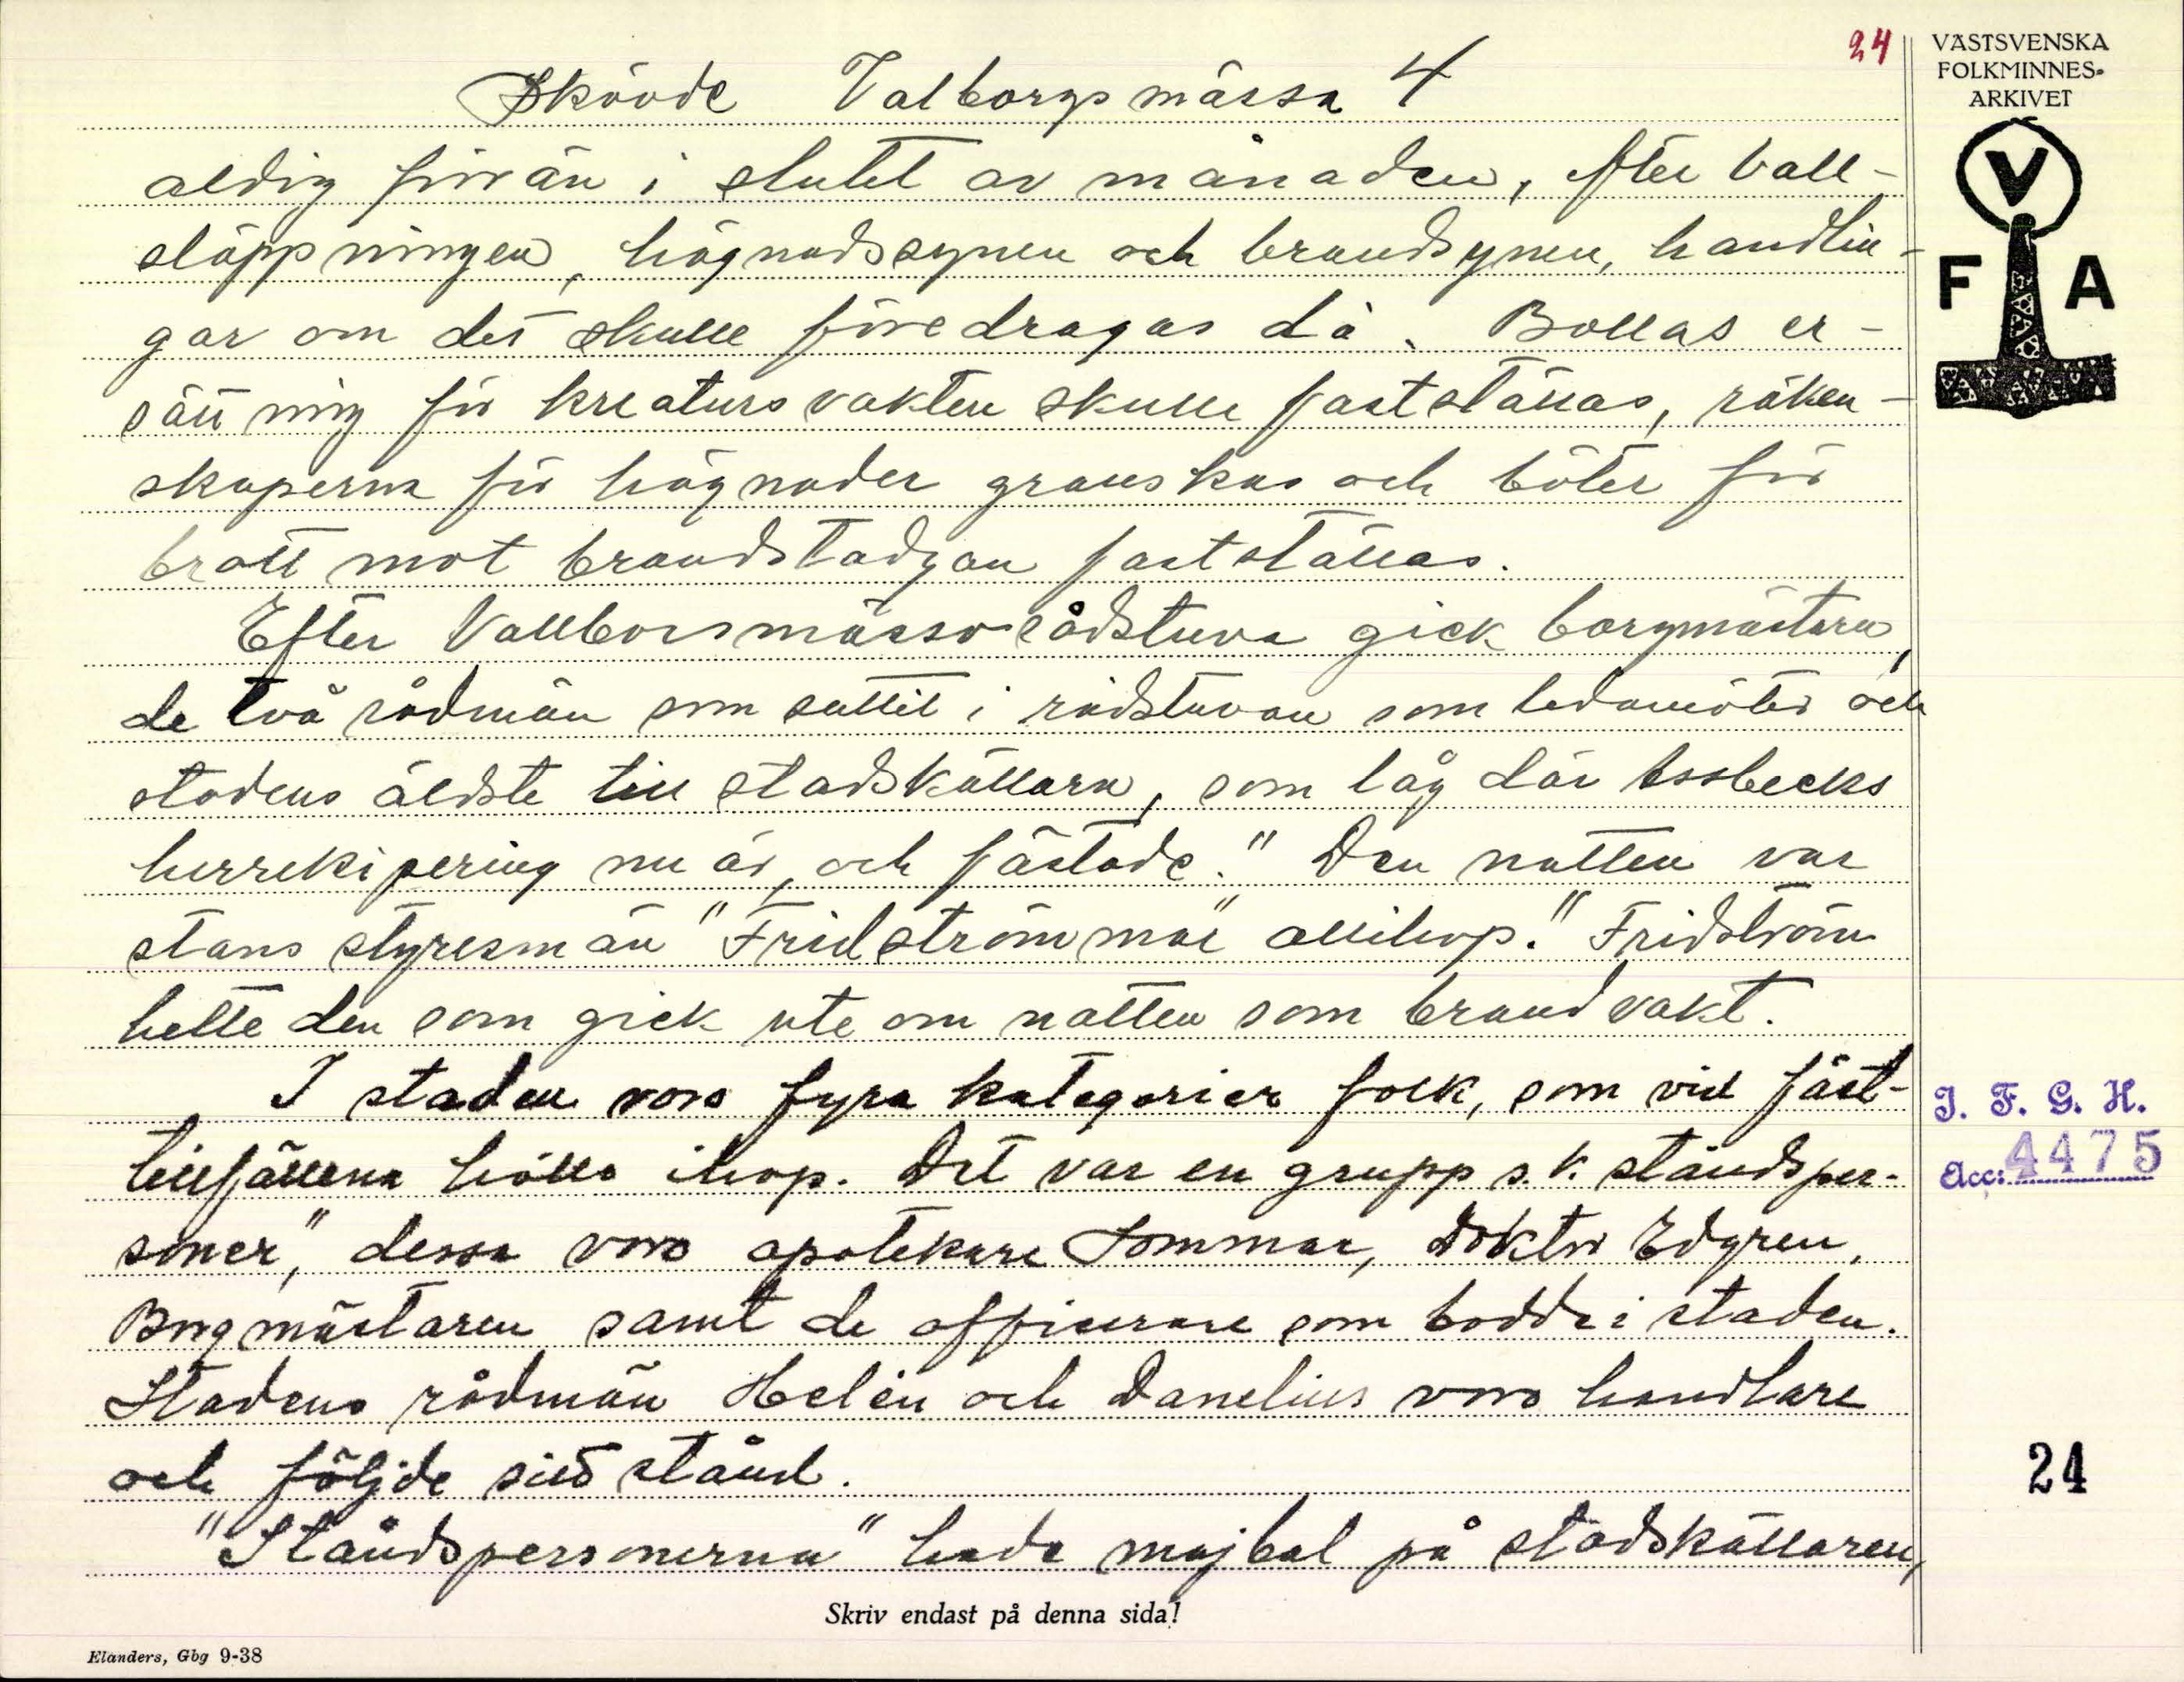 24
VÄSTSVENSKA
FOLKMINNES-
ARKIVET
V
F A
Skövde Valborgsmässa 4
aldrig förrän i slutet av månaden, efter vall-
släppningen, hägnadssynen och brandsynen, handlin-
gar om det skulle föredragas då. Bollas er-
sättning för kreatursvakten skulle fastställas, räken-
skaperna för hägnader granskas och böter för
brott mot brandstadgan fastställas.
Efter Vallborsmässorådstuva gick borgmästarn,
de två rådmän som suttit i rådstuvan som ledamöter och
stadens äldste till stadskällarn, som låg där Assbecks
herrekipering nu är, och fästade. "Den natten var
stans styresmän "Fridströmmar" allihop." Fridström
hette den som gick ute om natten som brandvakt.
I staden voro fyra kategorier folk, som vid fäst-
tillfällena höllo ihop. Det var en grupp s.k. ståndsper-
soner", dessa voro apotekare Sommar, doktor Edgren,
Borgmästaren samt de officerare som bodde i staden.
Stadens rådmän Helén och Danelius voro handlare
och följde sitt stånd.
"Ståndspersonerna" hade majbal på stadskällaren,
I. F. G. H.
Acc: 4475
24
Skriv endast på denna sida!
Elanders, Gbg 9-38